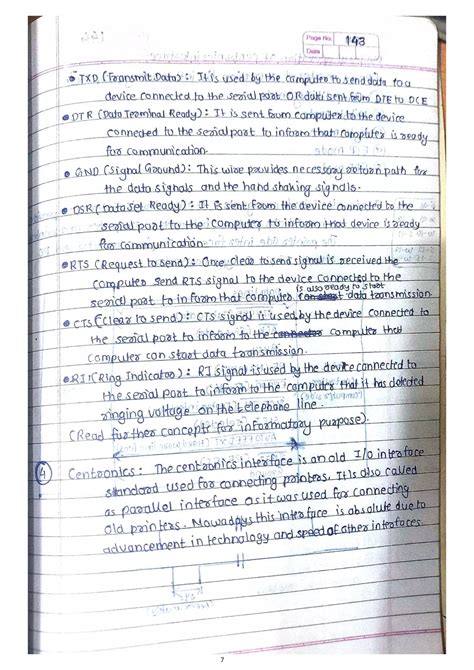 Page No. 143
Date
• TXD (Transmit Data) : It is used by the computer to send data to a
device connected to the serial port OR data sent from DTE to DCE
• DTR (Data Terminal Ready) : It is sent from computer to the device
connected to the serial port to inform that computer is ready
for communication.
• GND (Signal Ground) : This wire provides necessary return path for
the data signals and the hand shaking signals.
• DSR (Data Set Ready) : It is sent from the device connected to the
serial port to the computer to inform that device is ready
for communication
• RTS (Request to send) : Once clear to send signal is received the
computer send RTS signal to the device connected to the
is also ready to start
serial port to inform that computer data transmission.
• CTS (Clear to send) : CTS signal is used by the device connected to
the serial port to inform to the connector computer that
computer can start data transmission.
• RI (Ring Indicator) : RI signal is used by the device connected to
the serial port to inform to the computer that it has detected
ringing voltage on the telephone line.
(Read further concepts for informatory purpose).
4 Centronics : The centronics interface is an old I/O interface
standard used for connecting printers. It is also called
as parallel interface as it was used for connecting
old printers. Nowadays this interface is absolute due to
advancement in technology and speed of other interfaces.
7